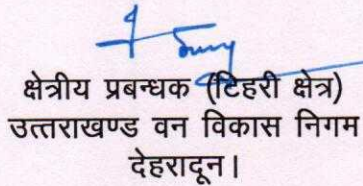 क्षेत्रीय प्रबन्धक (टिहरी क्षेत्र)
उत्तराखण्ड वन विकास निगम
देहरादून।